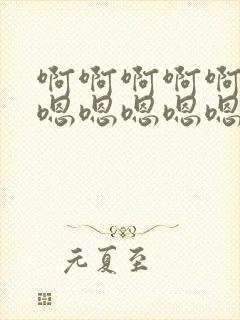 啊啊啊啊啊
嗯嗯嗯嗯嗯
元夏至